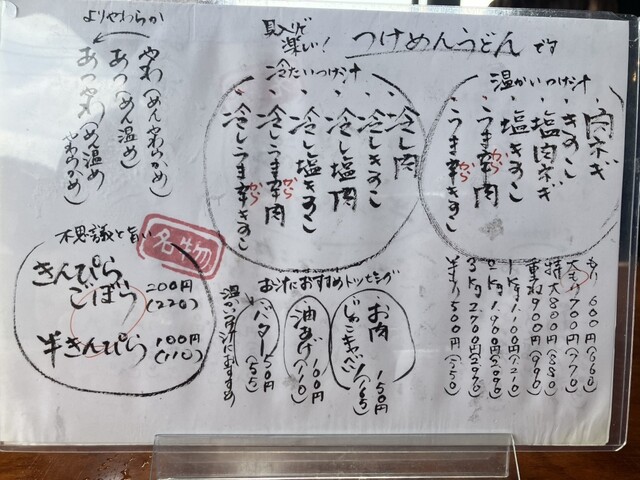 具入りで
楽しい!
つけめんうどんです
温かいつけ汁
・肉ネギ
・きのこ
・塩肉ネギ
・塩きのこ
・うま辛肉
から
・うま辛きのこ
から
冷たいつけ汁
・冷し肉
・冷しきのこ
・冷し塩肉
・冷し塩きのこ
・冷しうま辛肉
から
・冷しうま辛きのこ
から
よりやわらか
やわ(めんやわらかめ)
あつ(めん温め)
あつやわ(めん温め
やわらかめ)
もり 600円(660)
大もり700円(770)
特大800円(880)
重ね900円(990)
1kg1,100円(1210)
2kg
3kg2,700円(2970)
半もり500円(550)
お汁におすすめトッピング
お肉 150円
じゃこキャベツ(165)
油あげ100円
(110)
バター50円
(55)
温かい汁におすすめ
名物
不思議と旨い
きんぴら
ごぼう
200円
(220)
半きんぴら
100円
(110)